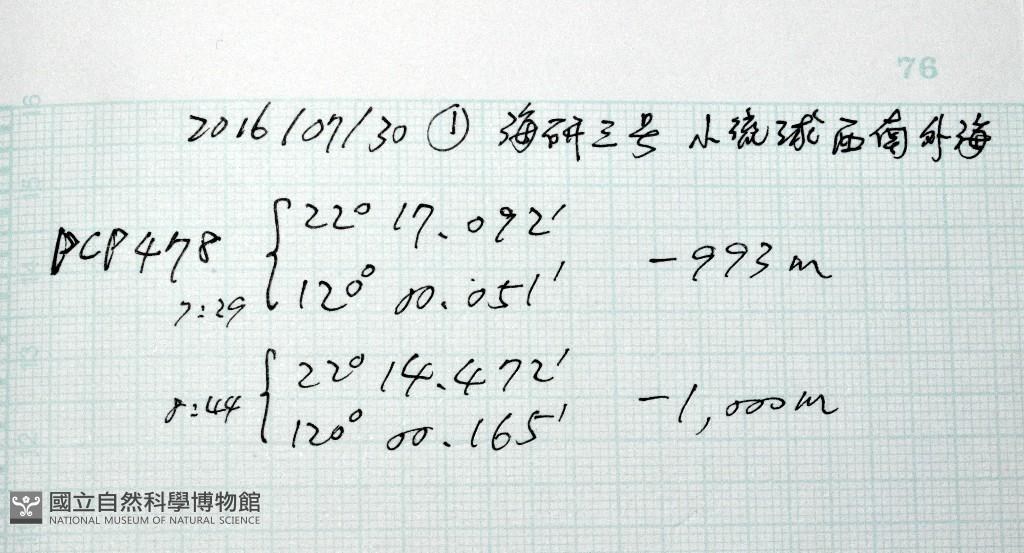 76
2016/07/30 ① 海研三号 小琉球西南外海
PCP478
7:29
22° 17.092'
120° 00.051'
-993m
8:44
22° 14.472'
120° 00.165'
-1,000m
國立自然科學博物館
NATIONAL MUSEUM OF NATURAL SCIENCE